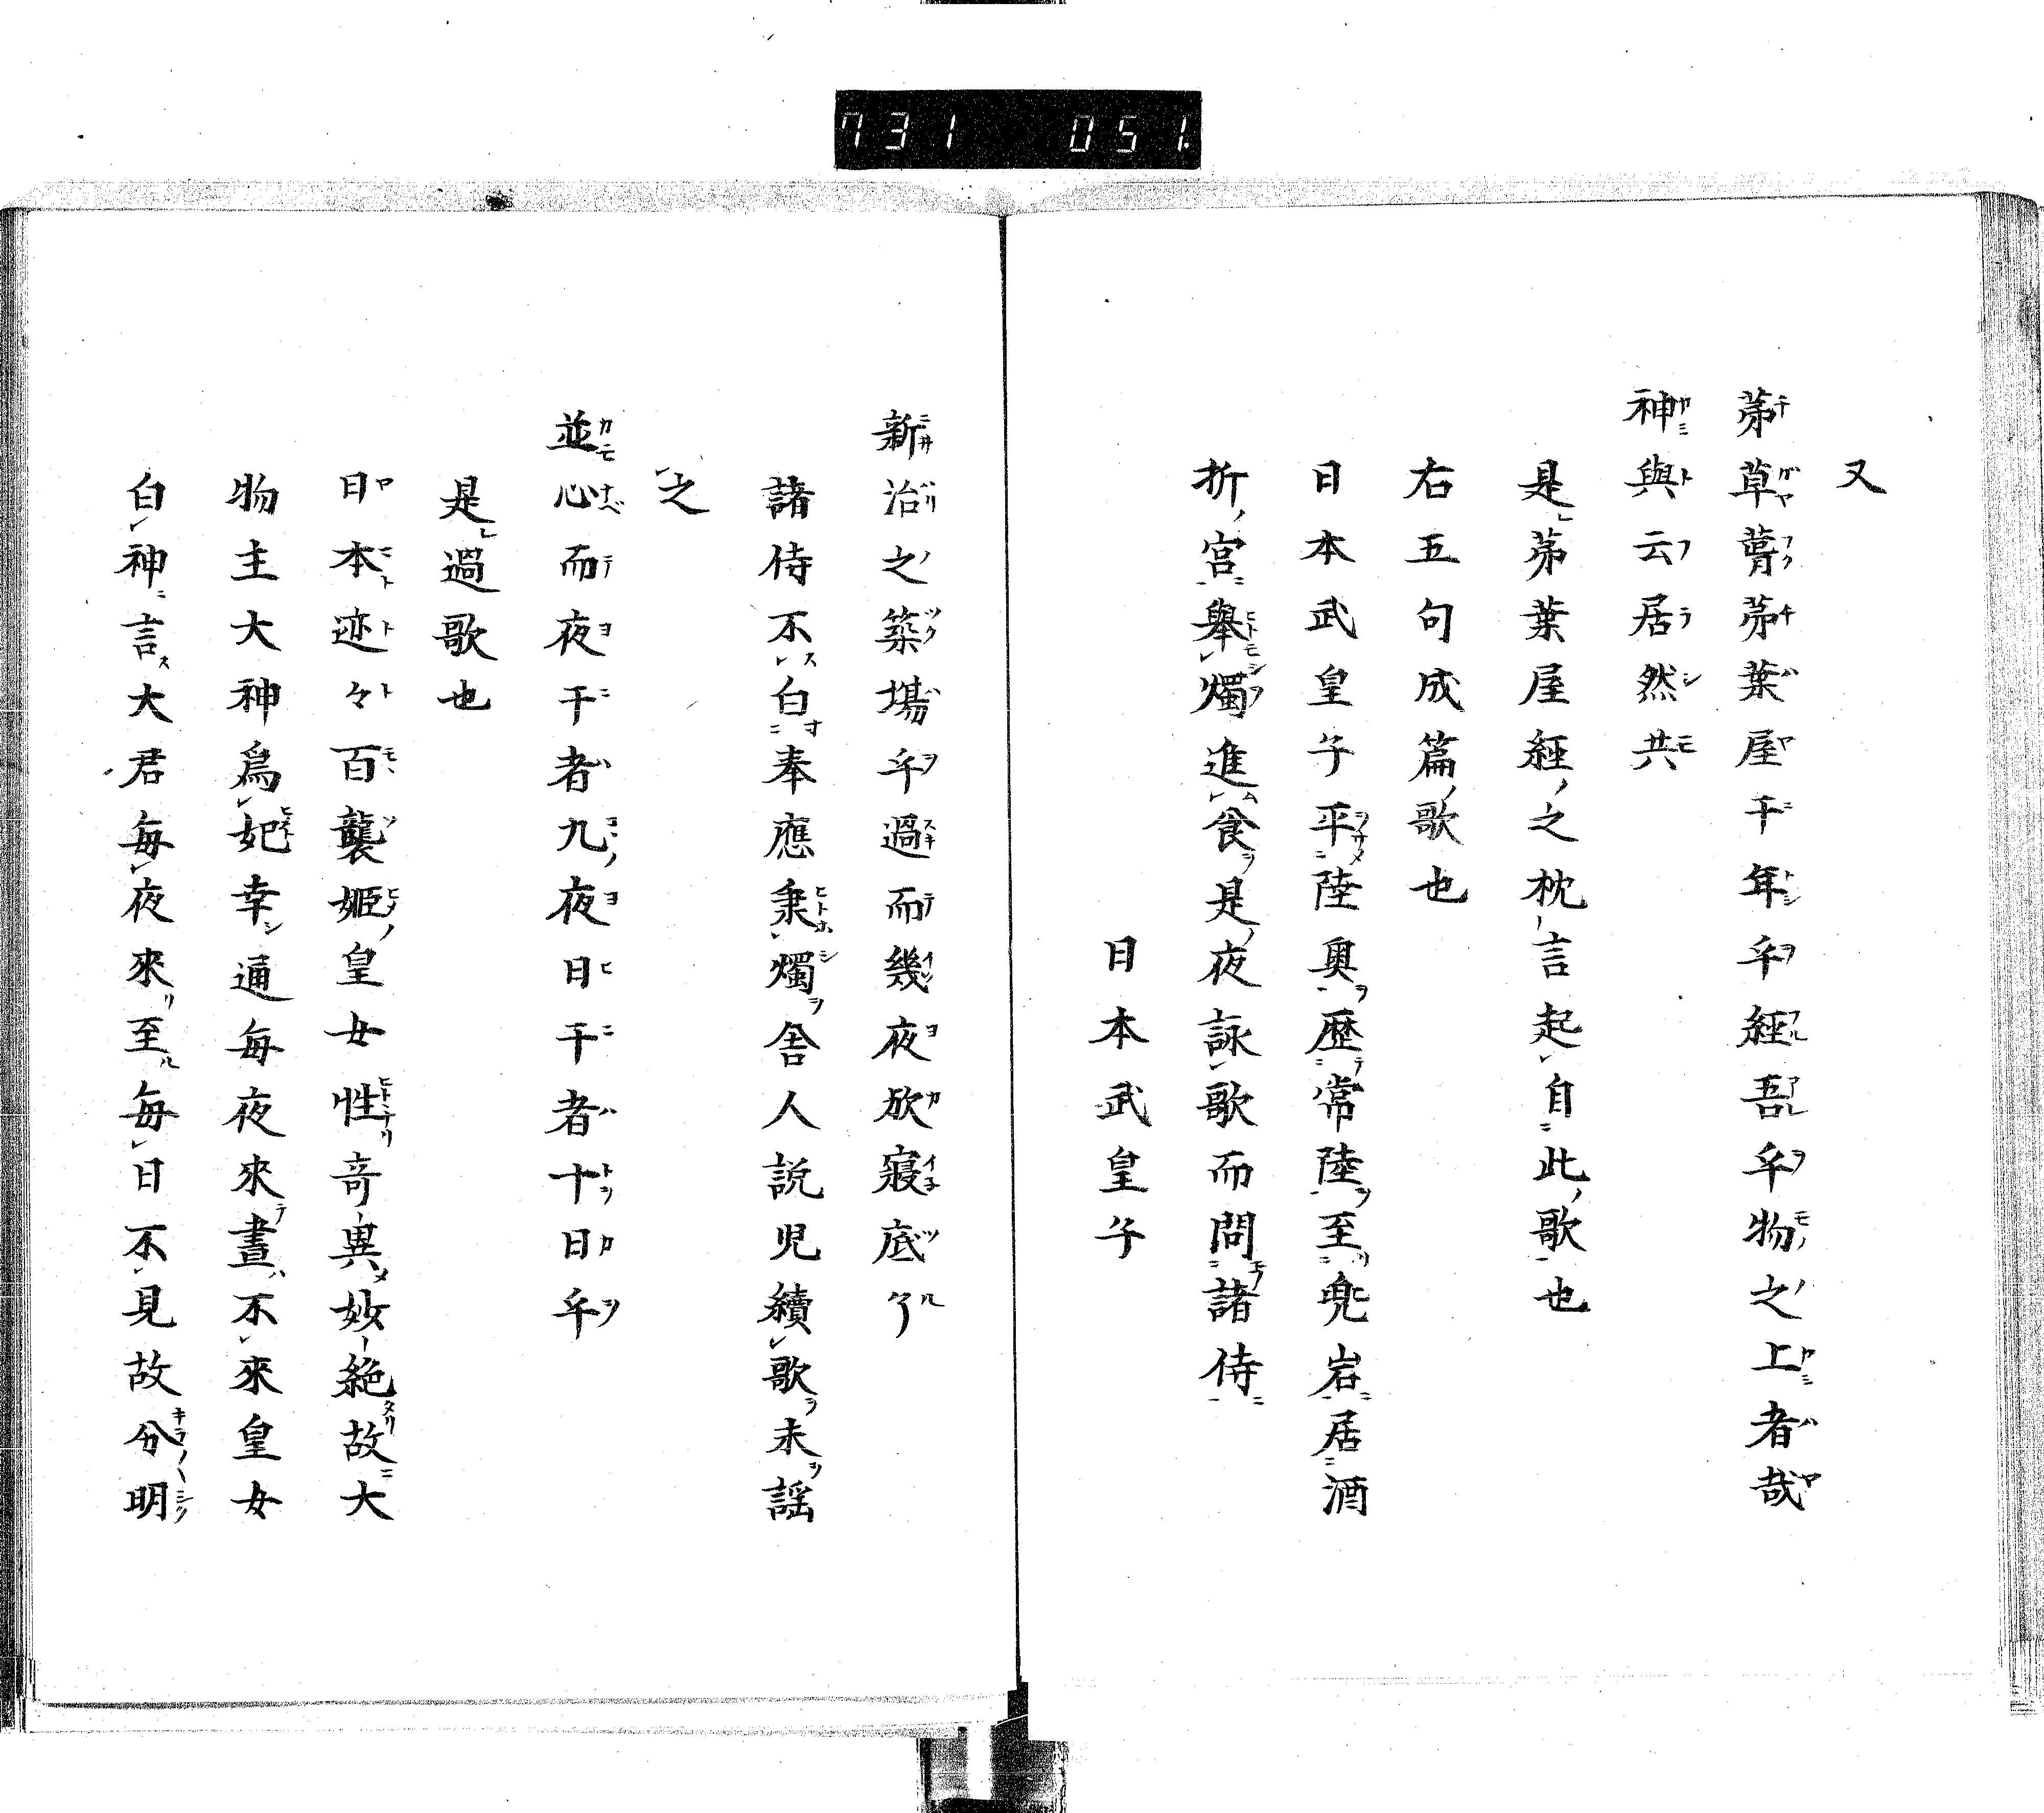 731 051
又
茅草葺茅葉屋干年乎經吾乎物之上者哉
神與云居然共
是茅葉屋經之枕言起自此歌也
右五句成篇歌也
日本武皇子平陸奧歷常陸至兜岩居酒
折宮舉燭進食是夜詠歌而問諸侍
日本武皇子
新治之築場乎過而幾夜欤寢底了
諸侍不白奉應秉燭舍人說児續歌未謡
之
並心而夜干者九夜日干者十日乎
是過歌也
日本迹々百襲姬皇女性奇異妙絕故大
物主大神爲妃幸通每夜來晝不來皇女
白神言大君每夜來至每日不見故分明